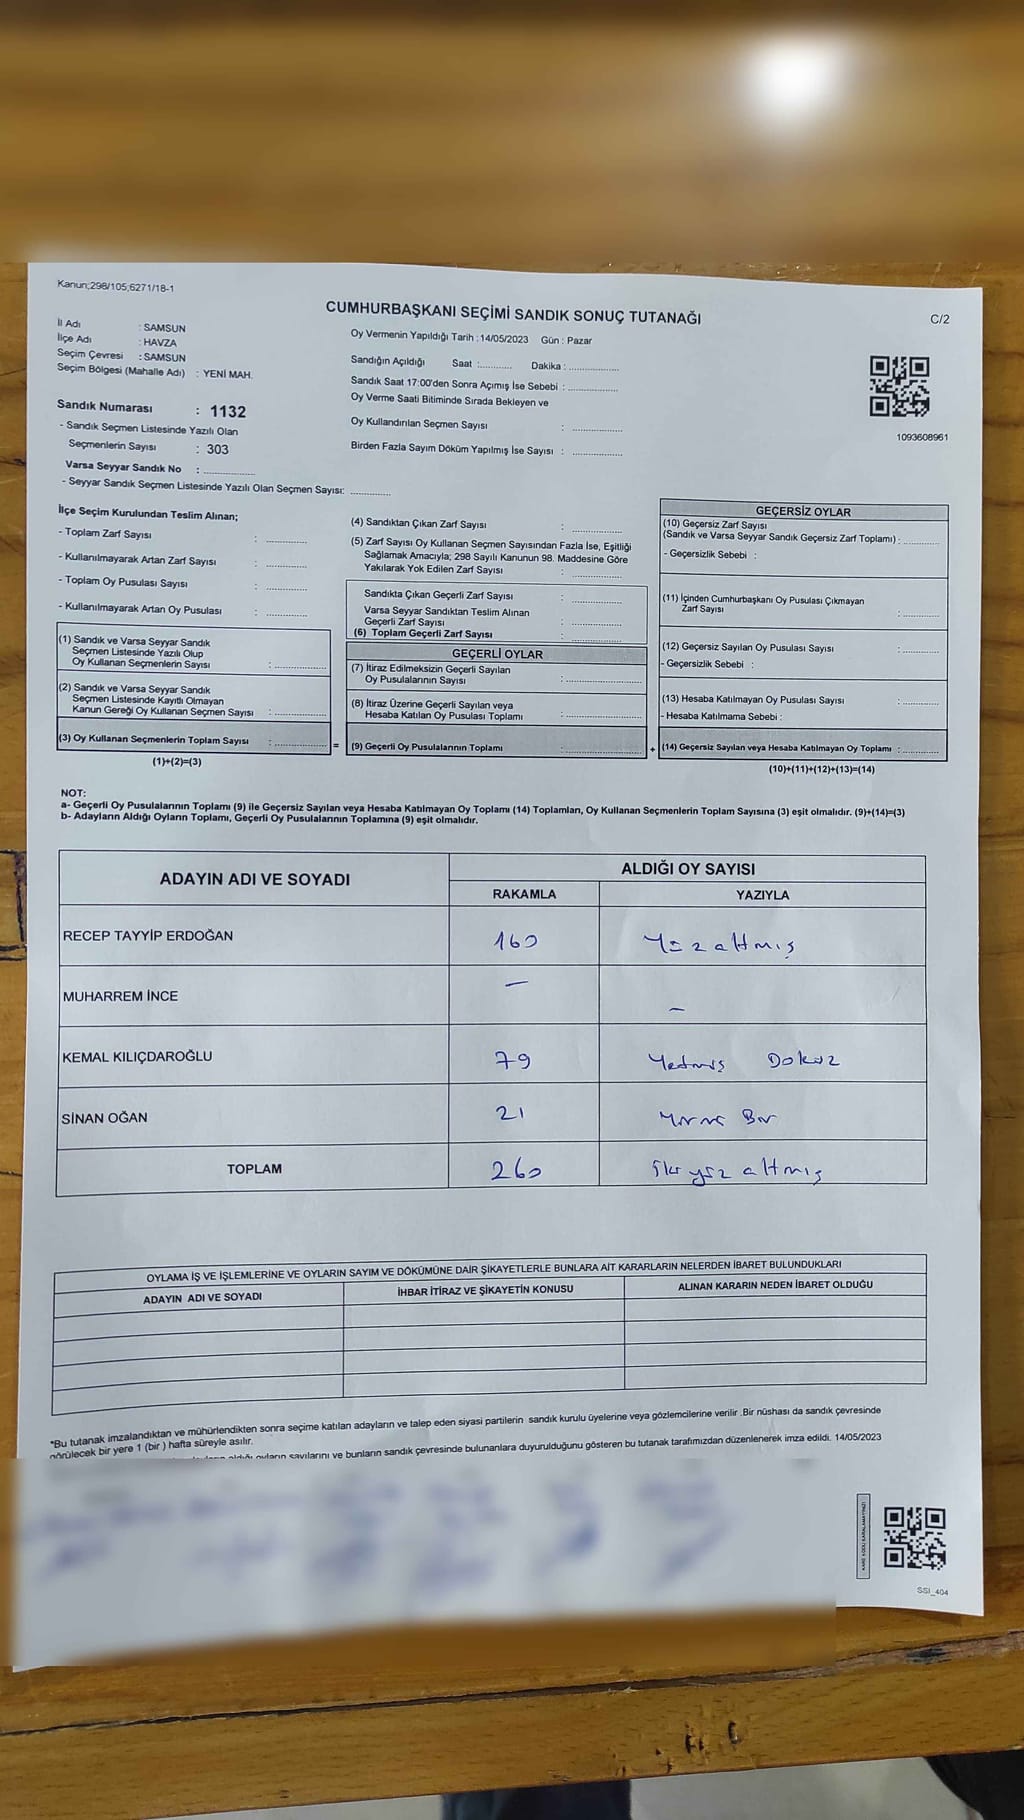 Kanun;298/105;6271/18-1
CUMHURBAŞKANI SEÇİMİ SANDIK SONUÇ TUTANAĞI
C/2
İl Adı : SAMSUN
İlçe Adı : HAVZA
Seçim Çevresi : SAMSUN
Seçim Bölgesi (Mahalle Adı) : YENİ MAH.
Sandık Numarası : 1132
- Sandık Seçmen Listesinde Yazılı Olan
Seçmenlerin Sayısı : 303
Varsa Seyyar Sandık No : ..............
- Seyyar Sandık Seçmen Listesinde Yazılı Olan Seçmen Sayısı: ............
Oy Vermenin Yapıldığı Tarih : 14/05/2023 Gün : Pazar
Sandığın Açıldığı Saat :........... Dakika : ..............
Sandık Saat 17:00'den Sonra Açımış İse Sebebi : ..............
Oy Verme Saati Bitiminde Sırada Bekleyen ve
Oy Kullandırılan Seçmen Sayısı : ..............
Birden Fazla Sayım Döküm Yapılmış İse Sayısı : ..............
1093608961
İlçe Seçim Kurulundan Teslim Alınan;
- Toplam Zarf Sayısı : ............
- Kullanılmayarak Artan Zarf Sayısı : ............
- Toplam Oy Pusulası Sayısı : ............
- Kullanılmayarak Artan Oy Pusulası : ............
(1) Sandık ve Varsa Seyyar Sandık
Seçmen Listesinde Yazılı Olup
Oy Kullanan Seçmenlerin Sayısı : ..............
(2) Sandık ve Varsa Seyyar Sandık
Seçmen Listesinde Kayıtlı Olmayan
Kanun Gereği Oy Kullanan Seçmen Sayısı : ..............
(3) Oy Kullanan Seçmenlerin Toplam Sayısı : ..............
(1)+(2)=(3)
=
(4) Sandıktan Çıkan Zarf Sayısı : ..............
(5) Zarf Sayısı Oy Kullanan Seçmen Sayısından Fazla İse, Eşitliği
Sağlamak Amacıyla; 298 Sayılı Kanunun 98. Maddesine Göre
Yakılarak Yok Edilen Zarf Sayısı : ..............
Sandıkta Çıkan Geçerli Zarf Sayısı : ..............
Varsa Seyyar Sandıktan Teslim Alınan
Geçerli Zarf Sayısı : ..............
(6) Toplam Geçerli Zarf Sayısı : ..............
GEÇERLİ OYLAR
(7) İtiraz Edilmeksizin Geçerli Sayılan
Oy Pusulalarının Sayısı : ..............
(8) İtiraz Üzerine Geçerli Sayılan veya
Hesaba Katılan Oy Pusulası Toplamı : ..............
(9) Geçerli Oy Pusulalarının Toplamı : ..............
+
GEÇERSİZ OYLAR
(10) Geçersiz Zarf Sayısı
(Sandık ve Varsa Seyyar Sandık Geçersiz Zarf Toplamı) : ............
- Geçersizlik Sebebi :
(11) İçinden Cumhurbaşkanı Oy Pusulası Çıkmayan
Zarf Sayısı : ............
(12) Geçersiz Sayılan Oy Pusulası Sayısı : ............
- Geçersizlik Sebebi :
(13) Hesaba Katılmayan Oy Pusulası Sayısı : ............
- Hesaba Katılmama Sebebi :
(14) Geçersiz Sayılan veya Hesaba Katılmayan Oy Toplamı : ............
(10)+(11)+(12)+(13)=(14)
NOT:
a- Geçerli Oy Pusulalarının Toplamı (9) ile Geçersiz Sayılan veya Hesaba Katılmayan Oy Toplamı (14) Toplamları, Oy Kullanan Seçmenlerin Toplam Sayısına (3) eşit olmalıdır. (9)+(14)=(3)
b- Adayların Aldığı Oyların Toplamı, Geçerli Oy Pusulalarının Toplamına (9) eşit olmalıdır.
ADAYIN ADI VE SOYADI ALDIĞI OY SAYISI
RAKAMLA YAZIYLA
RECEP TAYYİP ERDOĞAN 160 Yüz altmış
MUHARREM İNCE — —
KEMAL KILIÇDAROĞLU 79 Yetmiş Dokuz
SİNAN OĞAN 21 Yirmi Bir
TOPLAM 260 İki yüz altmış
OYLAMA İŞ VE İŞLEMLERİNE VE OYLARIN SAYIM VE DÖKÜMÜNE DAİR ŞİKAYETLERLE BUNLARA AİT KARARLARIN NELERDEN İBARET BULUNDUKLARI
ADAYIN ADI VE SOYADI İHBAR İTİRAZ VE ŞİKAYETİN KONUSU ALINAN KARARIN NEDEN İBARET OLDUĞU
*Bu tutanak imzalandıktan ve mühürlendikten sonra seçime katılan adayların ve talep eden siyasi partilerin sandık kurulu üyelerine veya gözlemcilerine verilir .Bir nüshası da sandık çevresinde
görülecek bir yere 1 (bir ) hafta süreyle asılır.
aldığı oyların sayılarını ve bunların sandık çevresinde bulunanlara duyurulduğunu gösteren bu tutanak tarafımızdan düzenlenerek imza edildi. 14/05/2023
KARE KODU KARALAMAYINIZ!
SSI_404